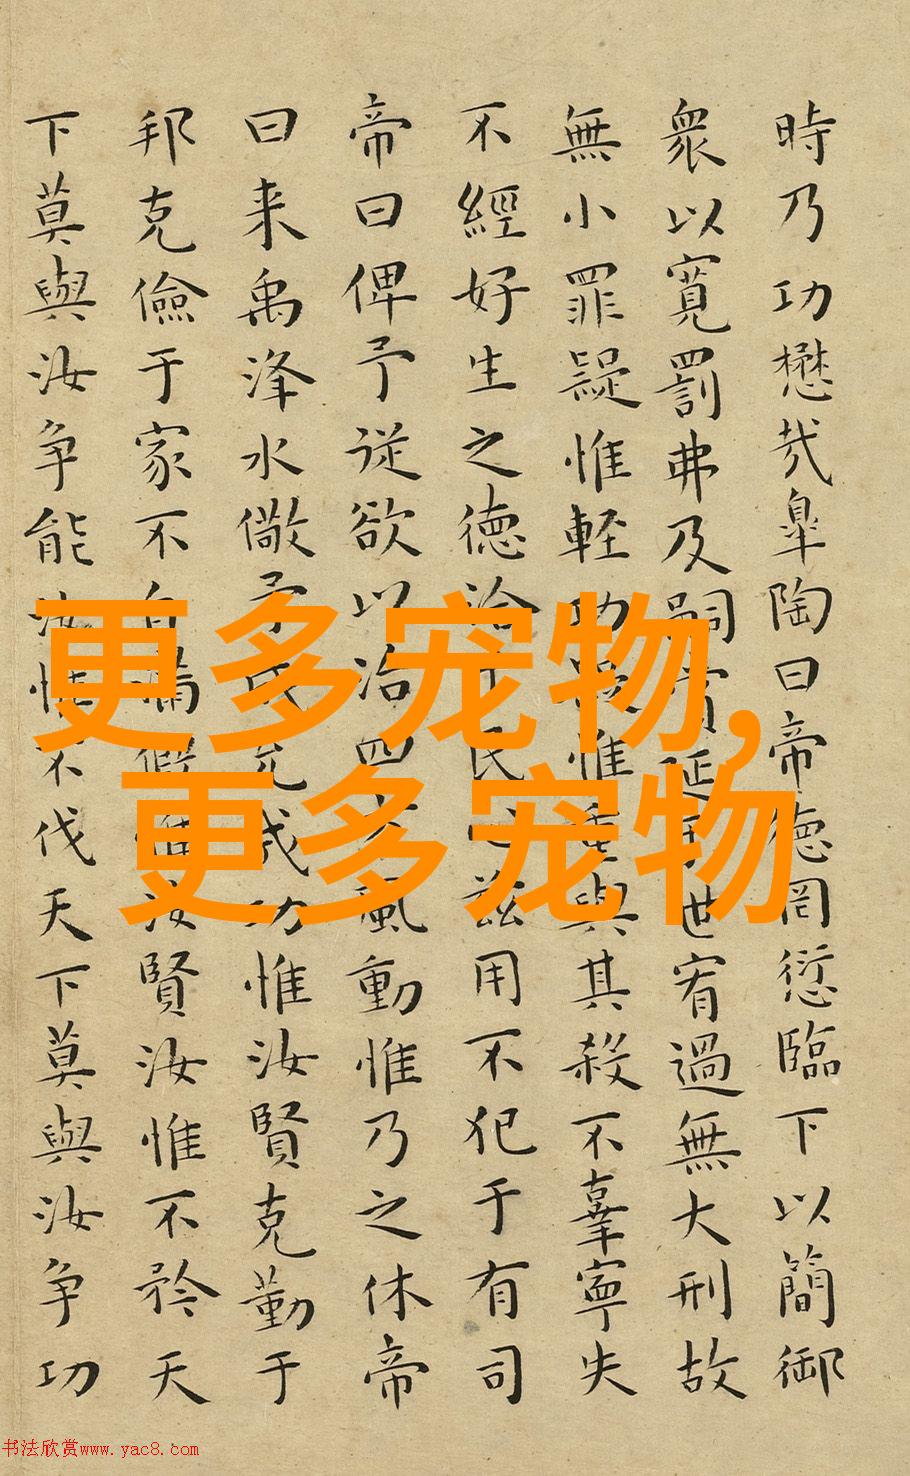 時乃功懋哉皐陶曰帝德罔愆臨下以簡御
衆以寬罰弗及嗣賞延于世宥過無大刑故
無小罪疑惟輕功疑惟重與其殺不辜寧失
不經好生之德洽于民心茲用不犯于有司
帝曰俾予從欲以治四方風動惟乃之休帝
曰来禹洚水儆予成允成功惟汝賢克勤于
邦克儉于家不自滿假惟汝賢汝惟不矜天
下莫與汝争能汝惟不伐天下莫與汝争功
更多宠物,
更多宠物
书法欣赏www.yac8.com